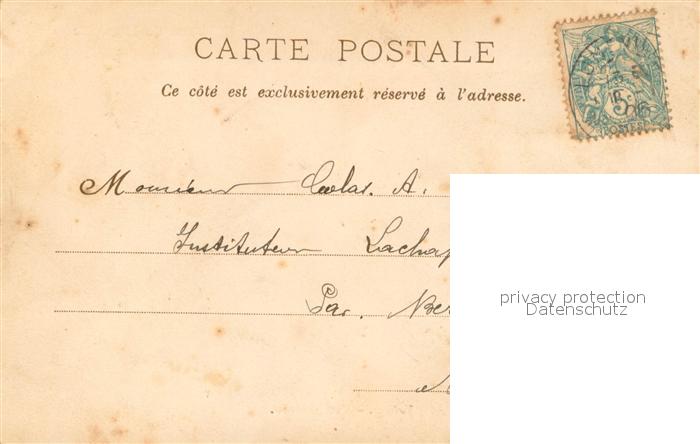 CARTE POSTALE
Ce côté est exclusivement réservé à l'adresse.
5
POSTES
Monsieur A.
Instituteur Lachap
Par. Ber
privacy protection
Datenschutz